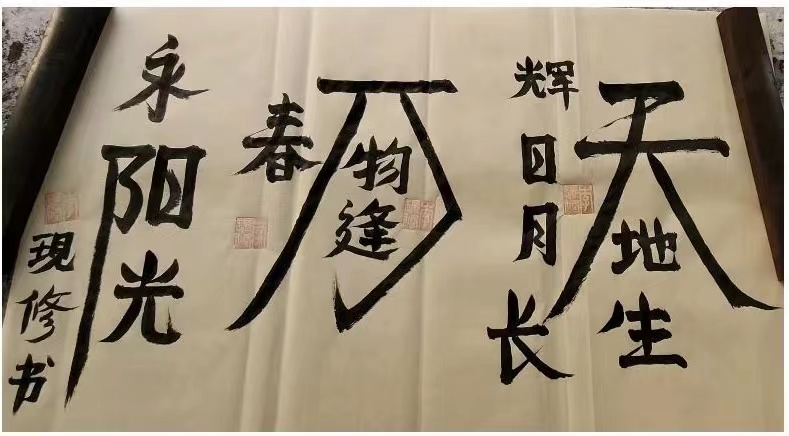 天地生
辉日月长
万物逢
春
永阳光
現修书